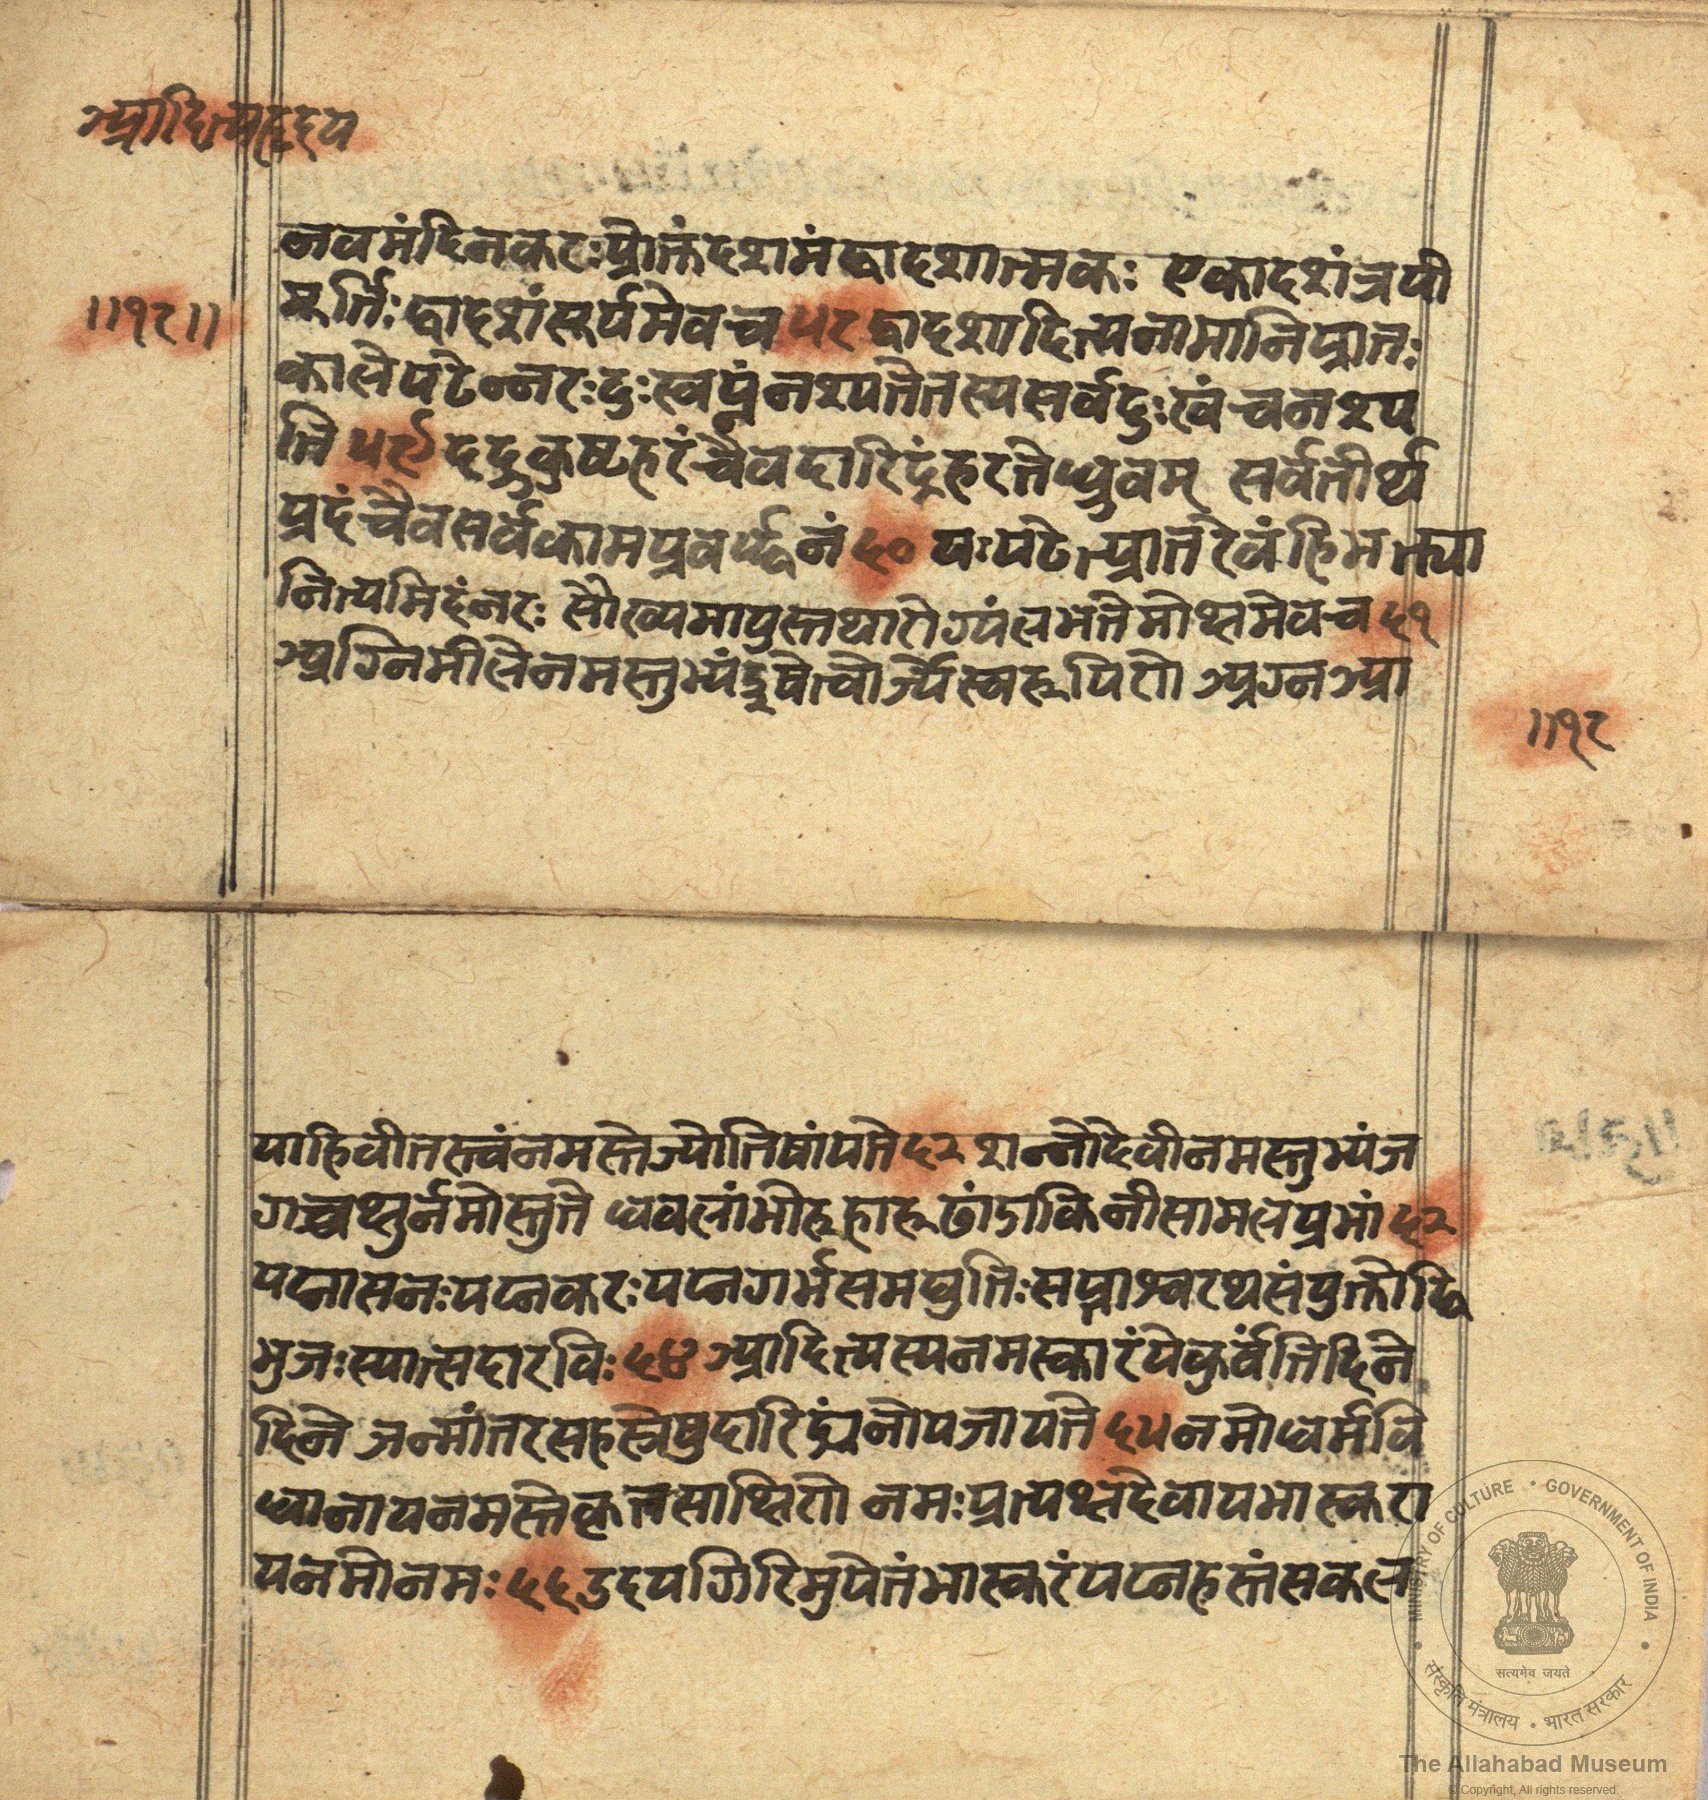 आदित्यहृदय
॥१८॥
नवमं दिनकरः प्रोक्तं दशमं द्वादशात्मकः एकादशं त्रयी
मूर्त्तिः द्वादशं सूर्यमेव च ५८ द्वादशादित्यनामानि प्रातः
काले पठेन्नरः दुःस्वप्नं नश्यते तस्य सर्वदुःखं च नश्य
ति ५९ दद्रुकुष्टहरं चैव दारिद्रं हरते ध्रुवम् सर्वतीर्थ
प्रदं चैव सर्वकामप्रवर्द्धनं ६० यः पठेत्प्रातरेवं हि भक्त्या
नित्यमिदं नरः सौख्यमायुस्तथारोग्यं लभते मोक्षमेव च ६१
अग्निमीले नमस्तुभ्यं इषेत्वोर्ज्ये स्वरूपिणे अग्न आ
॥१८
याहि वीतस्त्वं नमस्ते ज्योतिषांपते ६२ शन्नो देवी नमस्तुभ्यं ज
गच्चक्षुर्नमोस्तुते धवलांभोरूहारूढां डाकिनी सामलप्रभां ६२
पद्मासनः पद्मकरः पद्मगर्भसमद्युतिः सप्ताश्वरथसंयुक्तो द्वि
भुजः स्यात्सदा रविः ६४ आदित्यस्य नमस्कारं ये कुर्वंति दिने
दिने जन्मांतरसहस्त्रेषु दारिद्र्यं नोपजायते ६५ नमो धर्मवि
धानाय नमस्ते कृतसाक्षिणे नमः प्रत्यक्षदेवाय भास्करा
य नमो नमः ६६ उदयगिरिमुपेतं भास्करं पद्महस्तं सकल
MINISTRY OF CULTURE • GOVERNMENT OF INDIA
सत्यमेव जयते
संस्कृति मंत्रालय • भारत सरकार
The Allahabad Museum
© Copyright, All rights reserved.